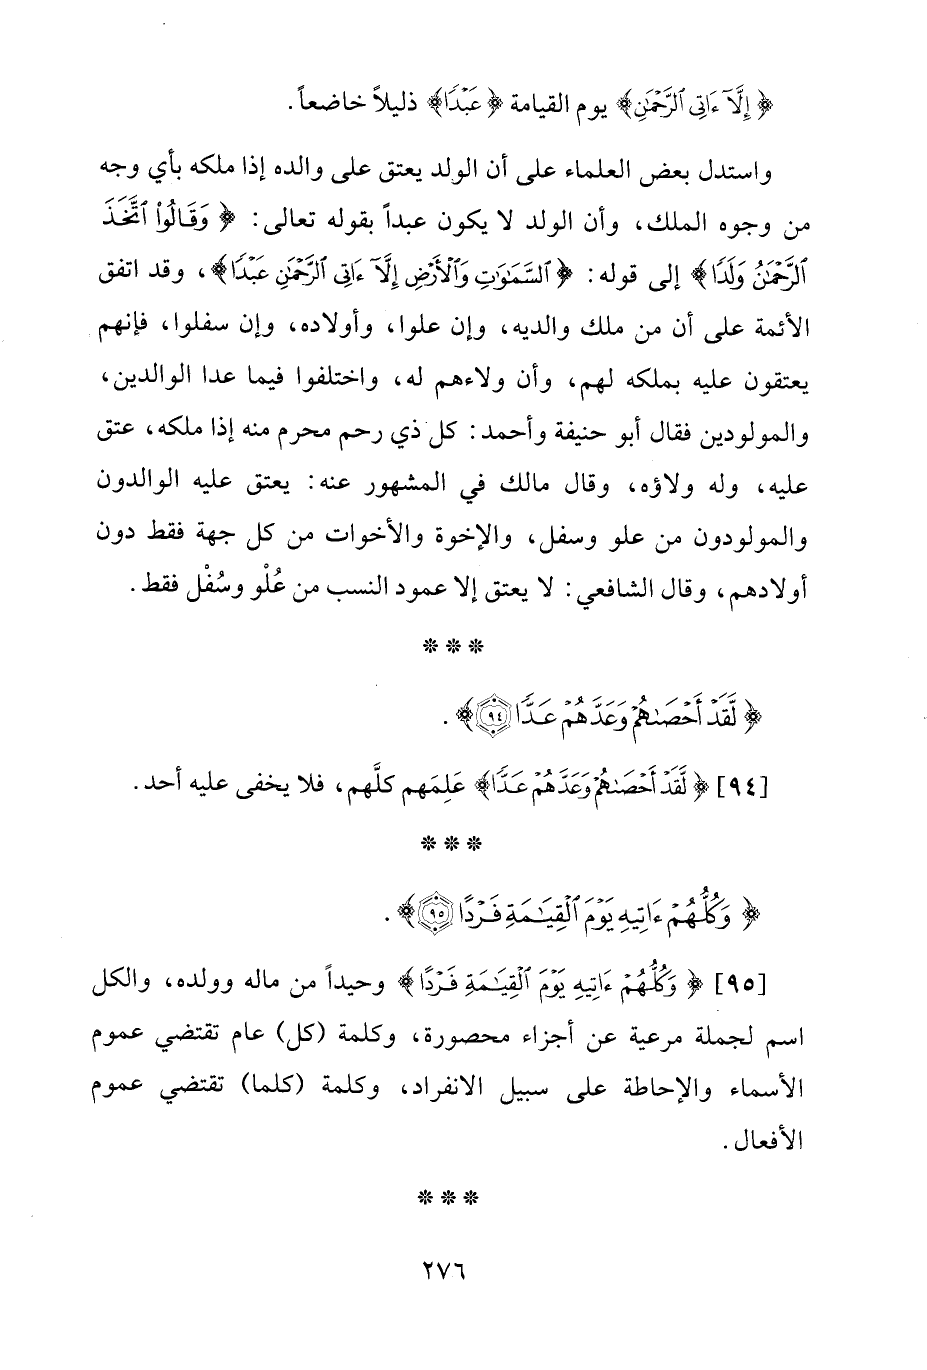 ﴿إِلَّآ ءَاتِى ٱلرَّحْمَٰنِ﴾ يوم القيامة ﴿عَبْدًا﴾ ذليلاً خاضعاً.
واستدل بعض العلماء على أن الولد يعتق على والده إذا ملكه بأي وجه
من وجوه الملك، وأن الولد لا يكون عبداً بقوله تعالى: ﴿وَقَالُوا۟ ٱتَّخَذَ
ٱلرَّحْمَٰنُ وَلَدًا﴾ إلى قوله: ﴿ٱلسَّمَٰوَٰتِ وَٱلْأَرْضِ إِلَّآ ءَاتِى ٱلرَّحْمَٰنِ عَبْدًا﴾، وقد اتفق
الأئمة على أن من ملك والديه، وإن علوا، وأولاده، وإن سفلوا، فإنهم
يعتقون عليه بملكه لهم، وأن ولاءهم له، واختلفوا فيما عدا الوالدين،
والمولودين فقال أبو حنيفة وأحمد: كل ذي رحم محرم منه إذا ملكه، عتق
عليه، وله ولاؤه، وقال مالك في المشهور عنه: يعتق عليه الوالدون
والمولودون من علو وسفل، والإخوة والأخوات من كل جهة فقط دون
أولادهم، وقال الشافعي: لا يعتق إلا عمود النسب من عُلْو وسُفْل فقط.
***
﴿لَّقَدْ أَحْصَىٰهُمْ وَعَدَّهُمْ عَدًّا ٩٤﴾.
[٩٤] ﴿لَّقَدْ أَحْصَىٰهُمْ وَعَدَّهُمْ عَدًّا﴾ عَلِمَهم كلَّهم، فلا يخفى عليه أحد.
***
﴿وَكُلُّهُمْ ءَاتِيهِ يَوْمَ ٱلْقِيَٰمَةِ فَرْدًا ٩٥﴾.
[٩٥] ﴿وَكُلُّهُمْ ءَاتِيهِ يَوْمَ ٱلْقِيَٰمَةِ فَرْدًا﴾ وحيداً من ماله وولده، والكل
اسم لجملة مرعية عن أجزاء محصورة، وكلمة (كل) عام تقتضي عموم
الأسماء والإحاطة على سبيل الانفراد، وكلمة (كلما) تقتضي عموم
الأفعال.
***
٢٧٦